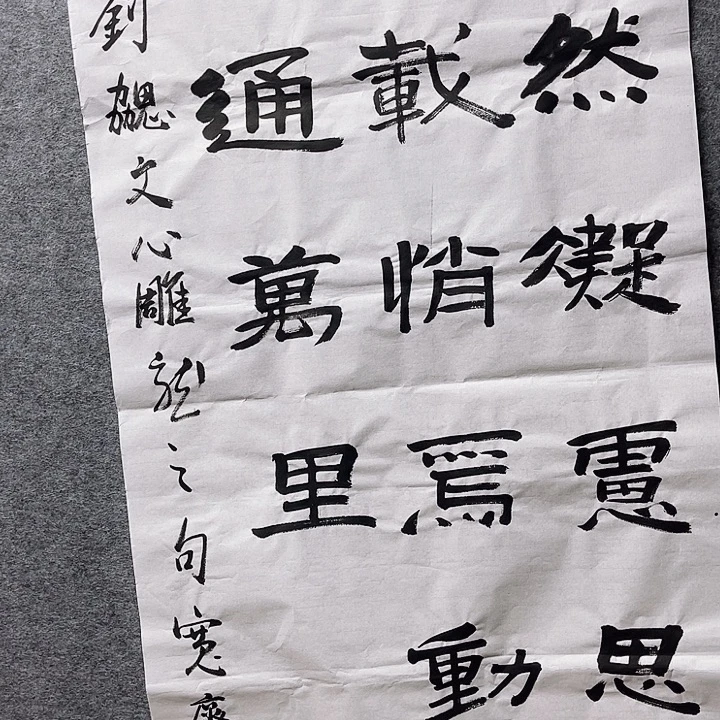 然凝慮思
載悄焉動
通萬里
劉勰文心雕龍之句寬